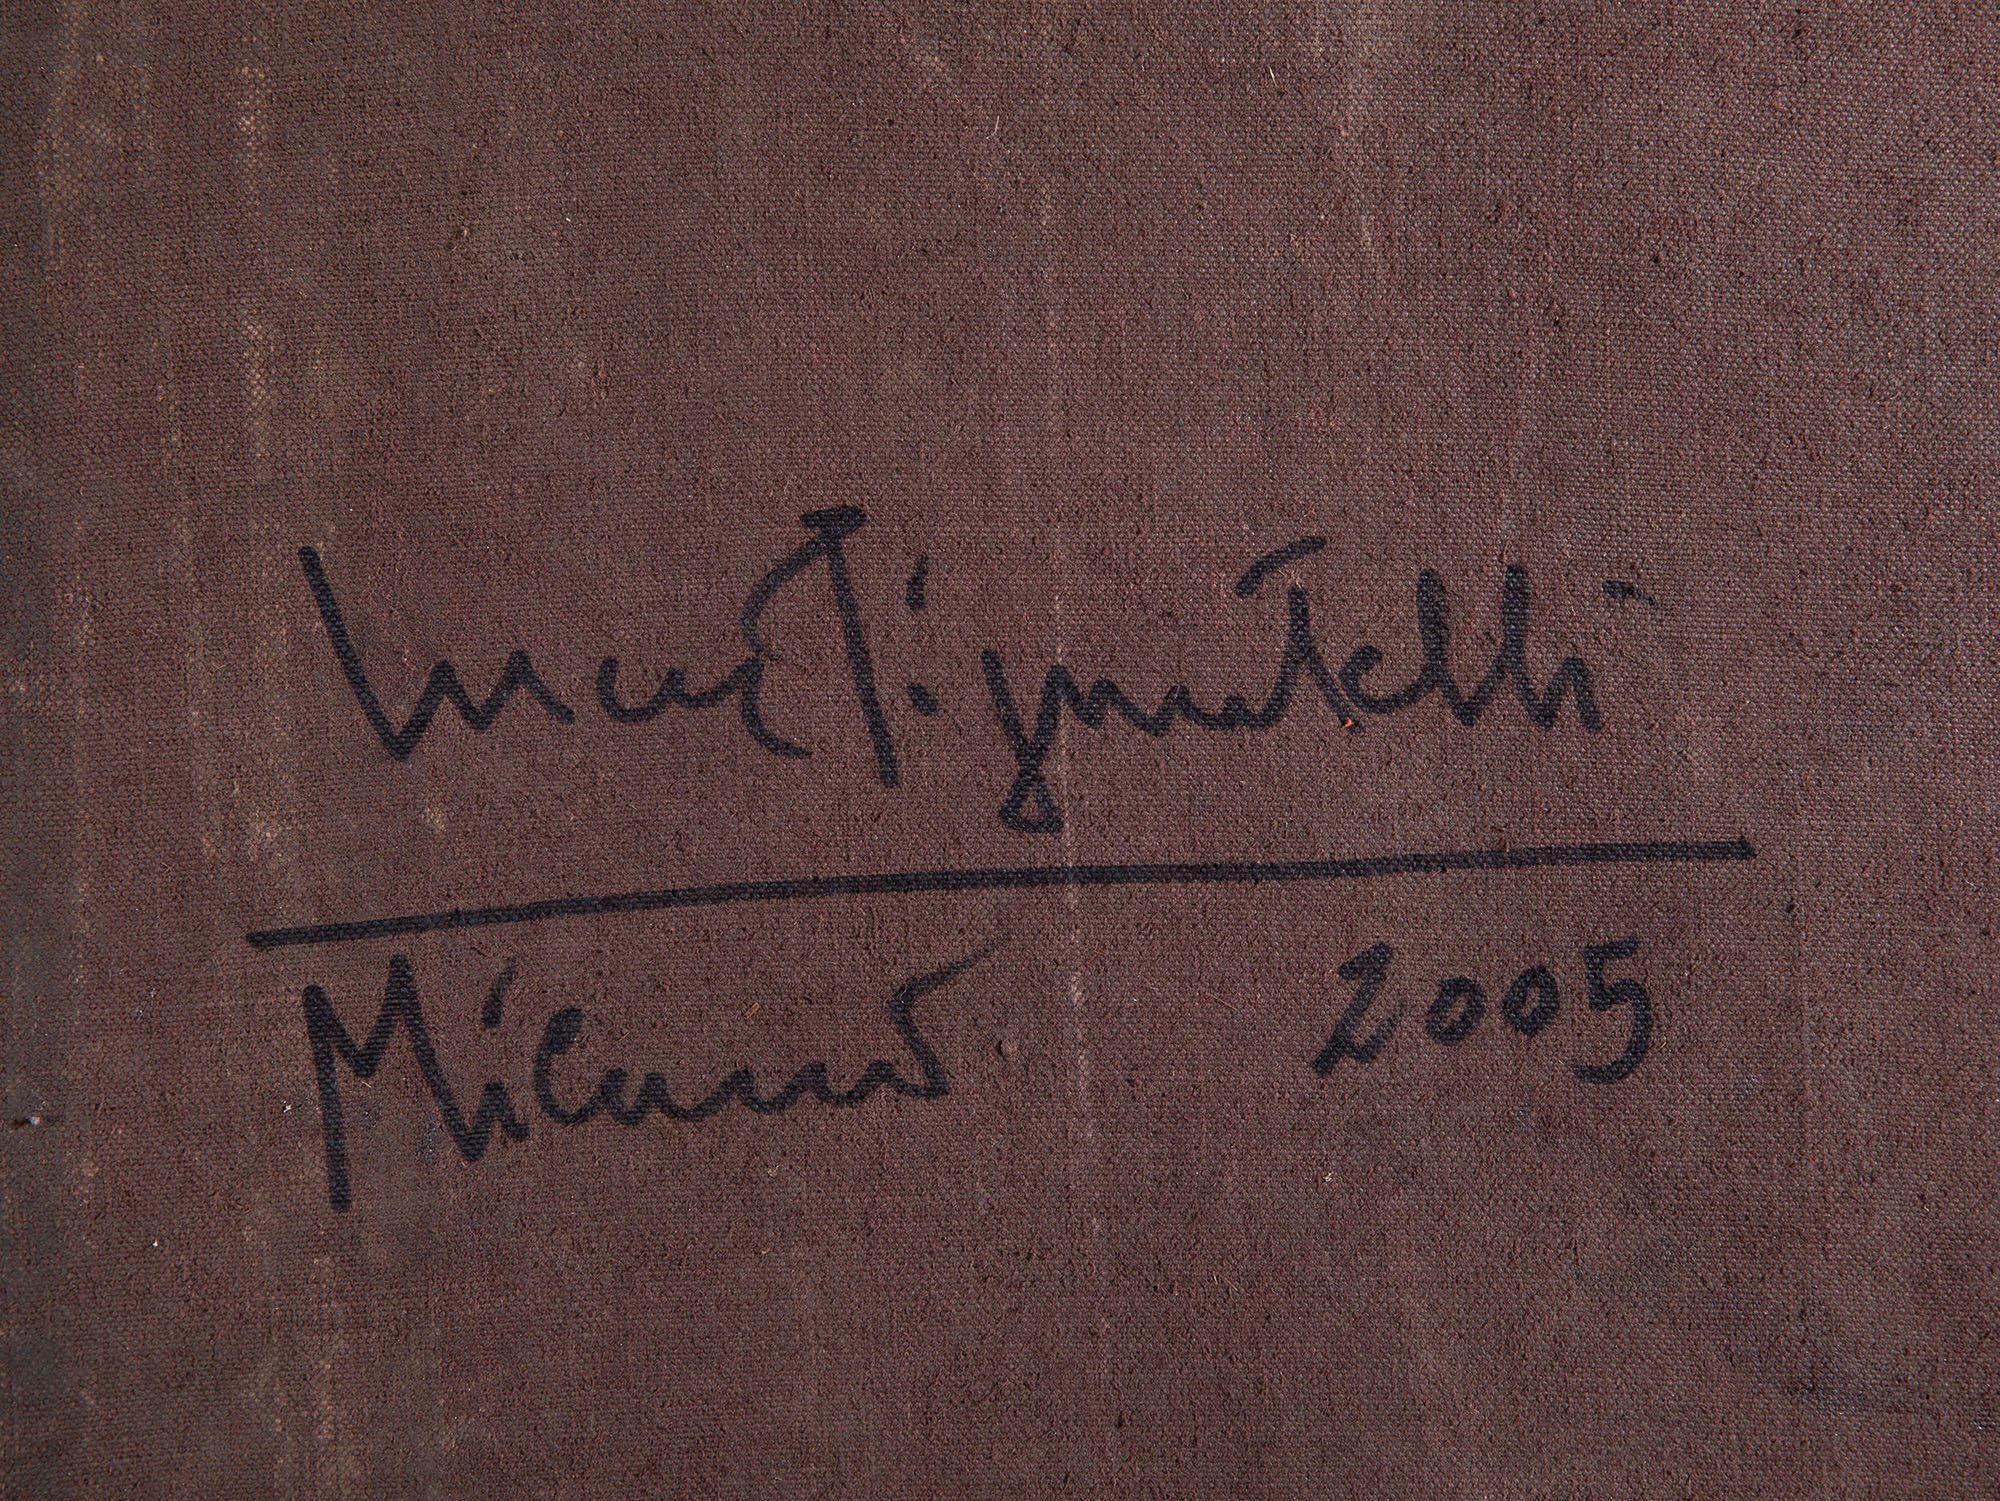 Luca Pignatelli
Milano 2005